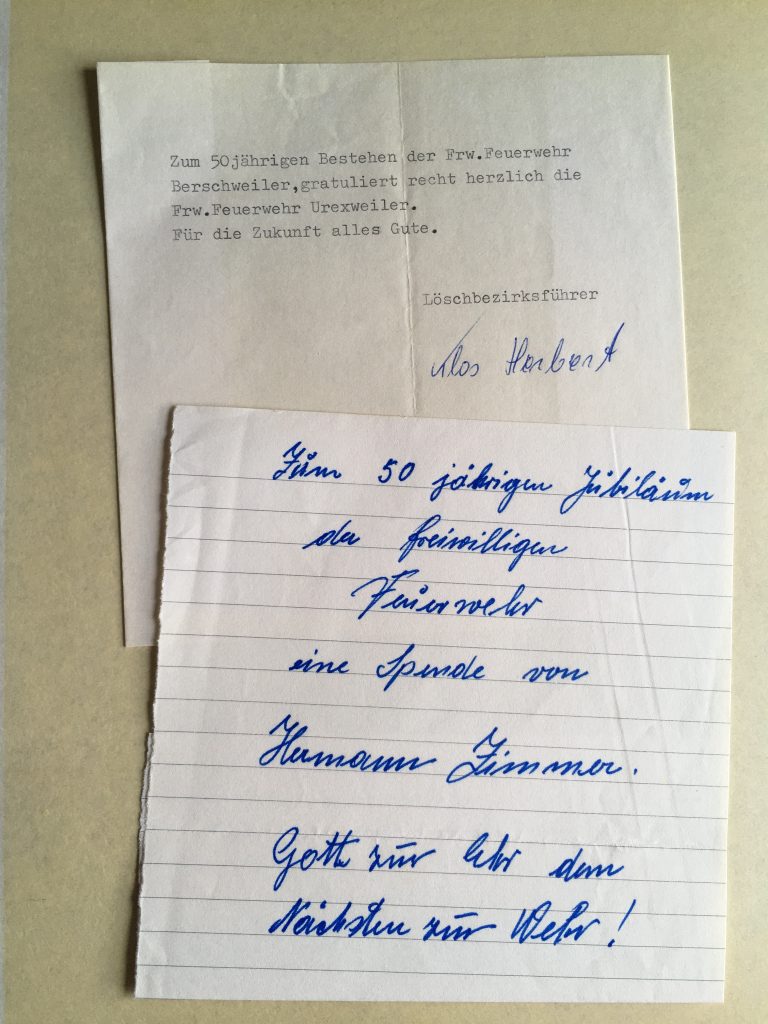 Zum 50jährigen Bestehen der Frw.Feuerwehr
Berschweiler,gratuliert recht herzlich die
Frw.Feuerwehr Urexweiler.
Für die Zukunft alles Gute.
Löschbezirksführer
Klos Herbert
Zum 50 jährigen Jubiläum
der freiwilligen
Feuerwehr
eine Spende von
Hermann Zimmer.
Gott zur Ehr dem
Nächsten zur Wehr!